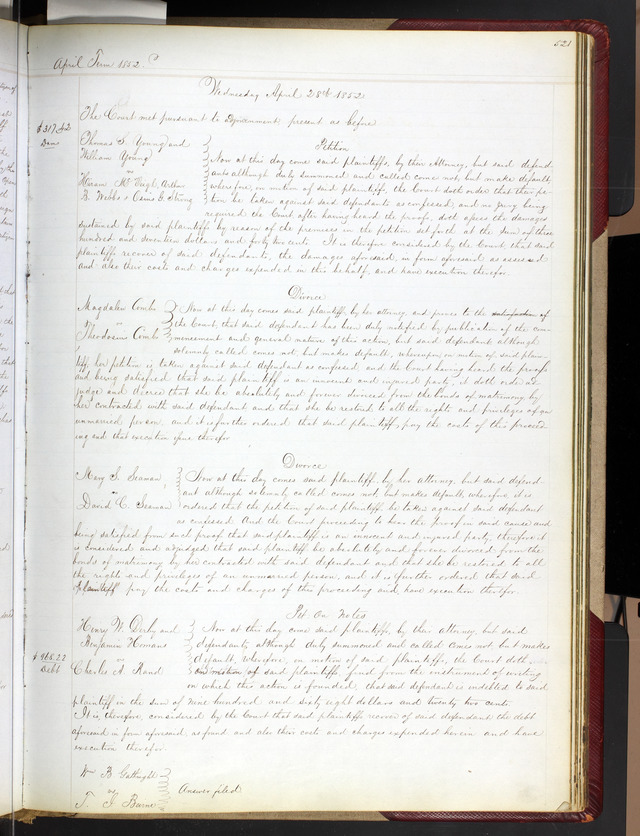 521
April Term 1852
Wednesday April 28th 1852
The Court met pursuant to adjournment present as before
$317.42
Dam
Thomas S Young and
William Young
vs
Hiram
B. Webb & Osmis G. Strong
Petition
Now at this day come said plaintiffs, by their Attorney, but said defend
ants although duly summoned and called comes not, but make default,
wherefore, on motion of said plaintiffs, the Court doth order that their peti
tion be taken against said defendants as confessed, and no jury being
required the Court after having heard the proofs, doth assess the damages
sustained by said plaintiffs by reason of the premises in the petition set forth at the sum of three
hundred and seventeen dollars and forty two cents. It is therefore considered by the Court, that said
plaintiffs recover of said defendants, the damages aforesaid, in form aforesaid as assessed
and also their costs and charges expended in this behalf, and have execution therefor.
Divorce
Magdalen Combs
vs
Theodosius Combs
Now at this day comes said plaintiff, by her attorney, and proves to the satisfaction of
the Court, that said defendant has been duly notified by publication of the com
mencement and general nature of this action, but said defendant although
solemnly called comes not but makes default, whereupon, on motion of said plain
tiff, her petition is taken against said defendant as confessed and the Court having heard the proofs
and being satisfied that said plaintiff is an innocent and injured party, it doth order ad
judge and decree that she be absolutely and forever divorced from the bonds of matrimony by
her contracted with said defendant and that she be restored to all the rights and privileges of an
unmarried person, and it is further ordered that said plaintiff, pay the costs of this proceed
ing and that execution issue therefor
Divorce
Mary S. Seaman,
vs
David C. Seaman
Now at this day comes said plaintiff, by her attorney, but said defend
ant although solemnly called comes not, but makes default, wherefore it is
ordered that the petition of said plaintiff be taken against said defendant
as confessed And the Court proceeding to hear the proof in said cause and
being satisfied from such proof that said plaintiff is an innocent and injured party, therefore it
is considered and adjudged that said plaintiff be absolutely and forever divorced from the
bonds of matrimony by her contracted with said defendant and that she be restored to all
the rights and privileges of an unmarried person, and it is further ordered that said
plaintiff pay the costs and charges of this proceeding and have execution therefor.
Pet On Notes
$968.22
Debt
Henry W. Derby and
Benjamin Homans
vs
Charles A. Rand
Now at this day come said plaintiffs, by their attorney, but said
defendant, although duly summoned and called comes not but makes
default, Wherefore, on motion of said plaintiffs, the Court doth,
on motion of said plaintiffs find from the instrument of writing
on which this action is founded, that said defendant is indebted to said
plaintiffs in the sum of Nine hundred and sixty eight dollars and twenty two cents
It is, therefore, considered by the Court that said plaintiffs recover of said defendant the debt
aforesaid in form aforesaid, as found and also their costs and charges expended herein and have
execution therefor.
Wm B Gathright
vs
T. J Burne
Answer filed